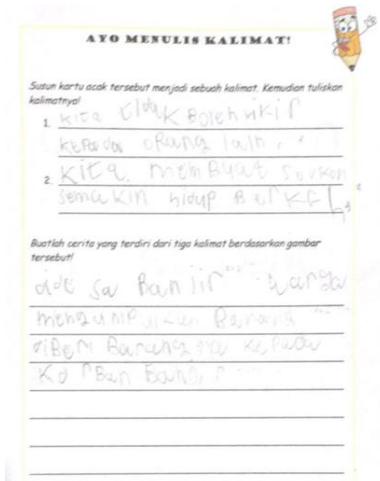 AYO MENULIS KALIMAT!
Susun kartu acak tersebut menjadi sebuah kalimat. Kemudian tuliskan
kalimatnya!
1. kita tidak Boleh kikir
kepada orang lain.
2. Kita membuat
semakin hidup
Buatlah cerita yang terdiri dari tiga kalimat berdasarkan gambar
tersebut!
Banjir warga
Barang
diberi Barang kepada
korban Banjir